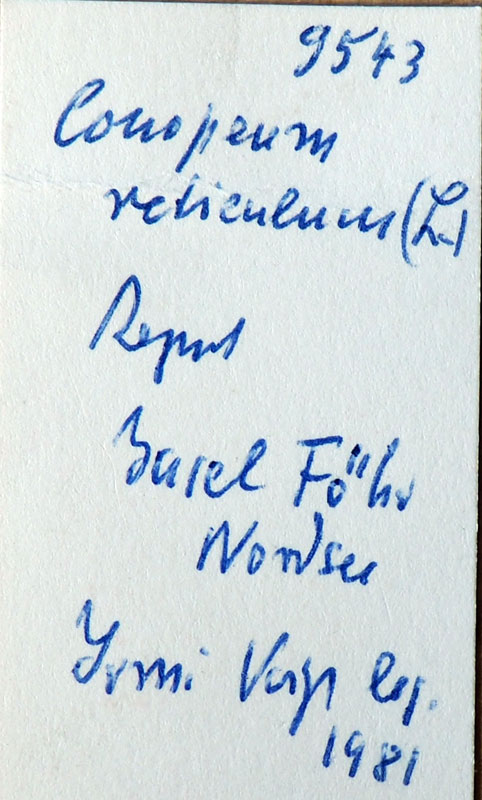 9543
Conopeum
reticulum (L.)
Rezent
Insel Föhr
Nordsee
Irmi Voigt leg.
1981